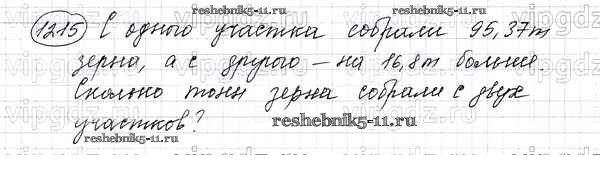 reshebnik5-11.ru
1215 С одного участка собрали 95,37т
зерна, а с другого – на 16,8т больше.
Сколько тонн зерна собрали с двух
участков?
reshebnik5-11.ru